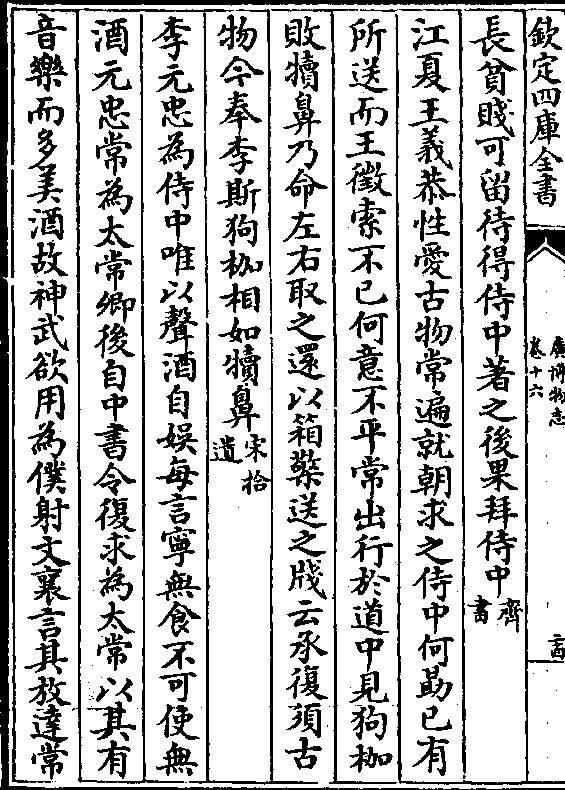 欽定四庫全書
廣博物志
卷十六
長貧賤可留待得侍中著之後果拜侍中齊書
江夏王義恭性愛古物常遍就朝求之侍中何勗已有
所送而王徵索不已何意不平常出行於道中見狗枷
敗犢鼻乃命左右取之還以箱擎送之牋云承復須古
物今奉李斯狗枷相如犢鼻宋拾遺
李元忠為侍中唯以聲酒自娛每言寧無食不可使無
酒元忠常為太常卿後自中書令復求為太常以其有
音樂而多美酒故神武欲用為僕射文襄言其放達常